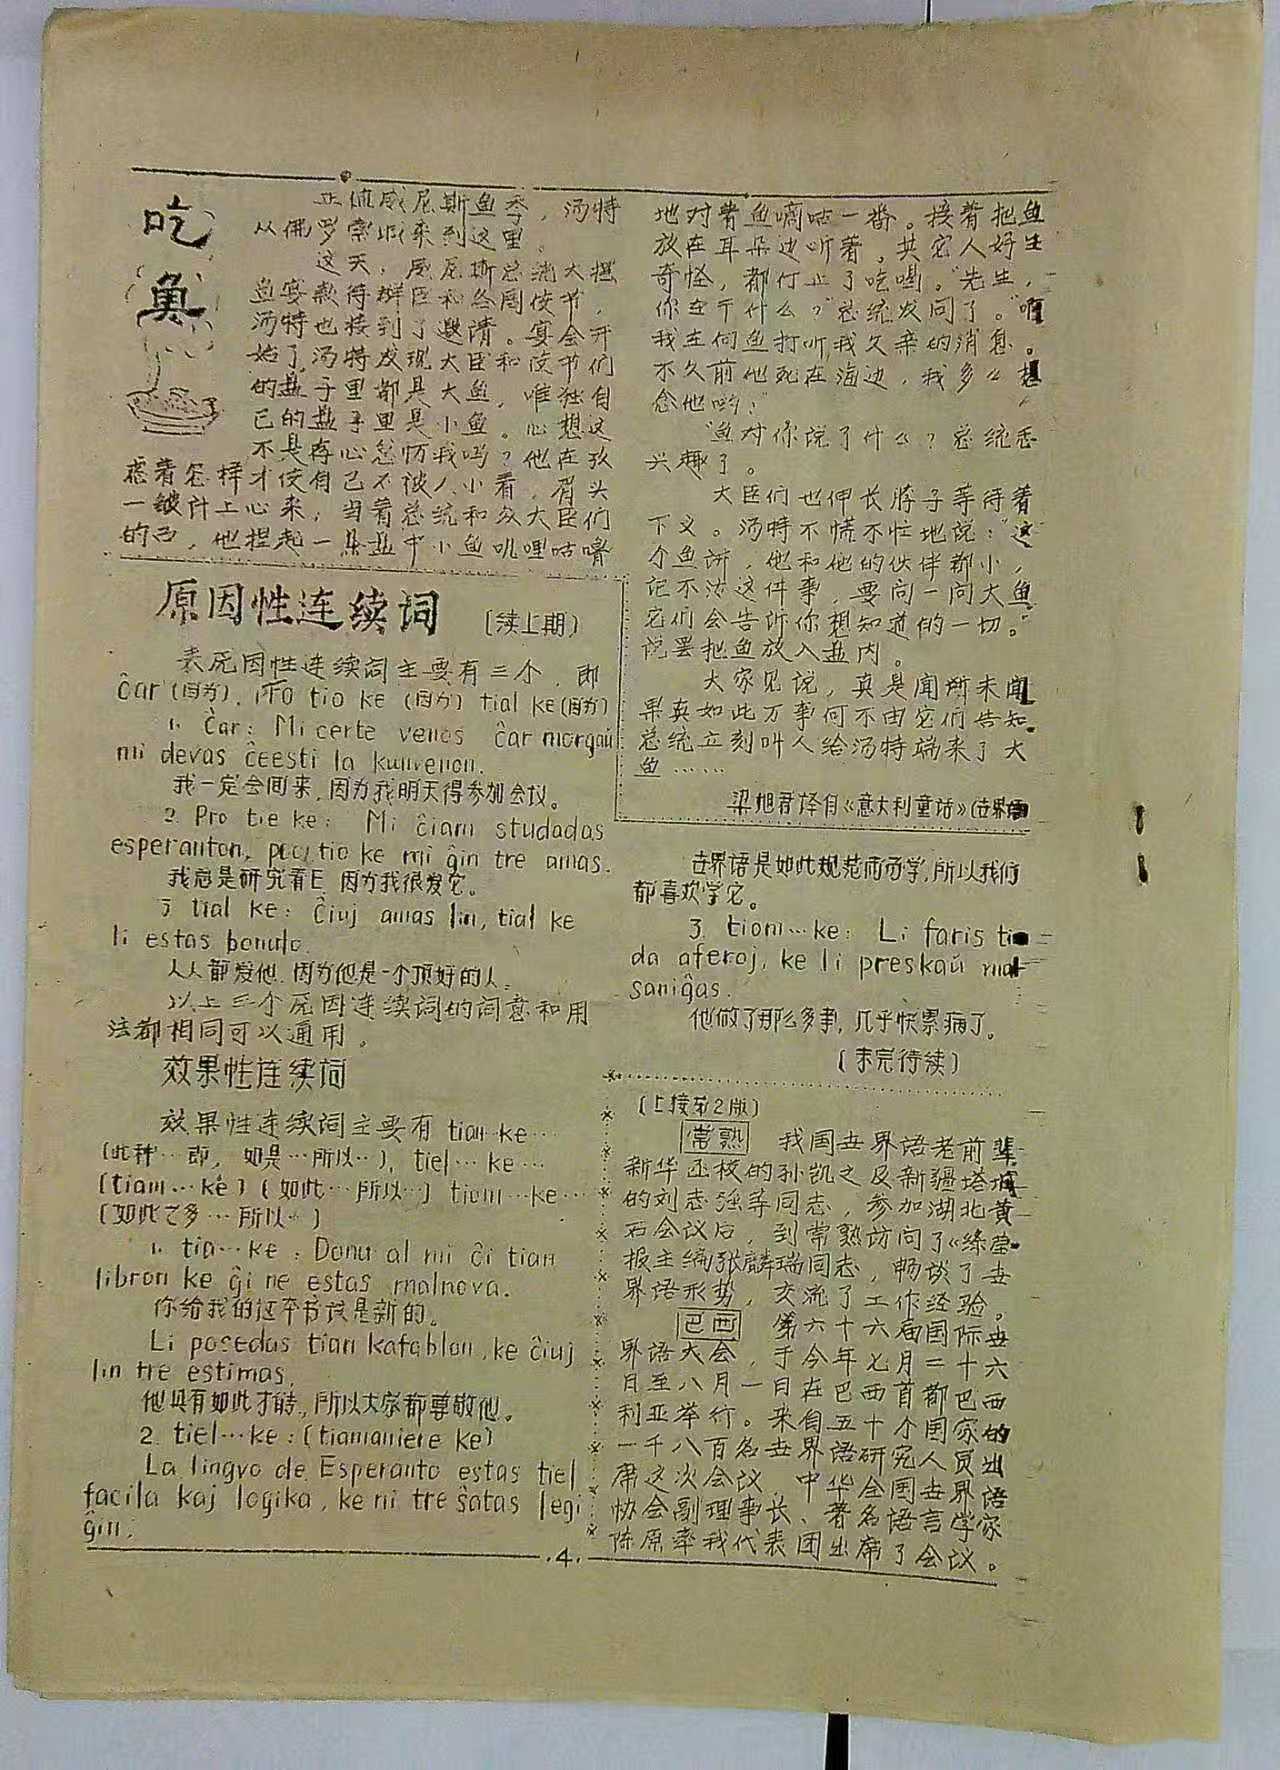 吃鱼
正值威尼斯鱼季，汤特
从佛罗索琅来到这里。
这天，威尼斯总统大摆
鱼宴款待群臣和各国使节，
汤特也接到了邀请。宴会开
始了，汤特发现大臣和使节们
的盘子里都是大鱼，唯独自
己的盘子里是小鱼。心想这
不是存心怠忉我吗？他在孜
虑着怎样才使自己不被人小看，眉头
一皱计上心来，当着总统和众大臣们
的面，他捏起一条盘中小鱼叽哩咕噜
地对着鱼嘀咕一番。接着把鱼
放在耳朵边听着。其它人好生
奇怪，都停止了吃喝。“先生，
你在干什么？”总统发问了。“啊
我在向鱼打听我父亲的消息。
不久前他死在海边，我多么想
念他哟！”
“鱼对你说了什么？总统丢
兴趣了。
大臣们也伸长脖子等待着
下文。汤特不慌不忙地说：“这
个鱼讲，他和他的伙伴都小，
记不浓这件事，要问一问大鱼
它们会告诉你想知道的一切。”
说罢把鱼放入盘内。
大家见说，真是闻所未闻
果真如此万事何不由它们告知。
总统立刻叫人给汤特端来了大
鱼……
梁旭君译自《意大利童话》(世界语
原因性连续词 〔续上期〕
表原因性连续词主要有三个，即
ĉar (因为)，pro tio ke (因为) tial ke (因为)
1. Ĉar: Mi certe venos ĉar morgaŭ
mi devas ĉeesti la kunvenon.
我一定会回来，因为我明天得参加会议。
2. Pro tio ke: Mi ĉiam studadas
esperanton, pro tio ke mi ĝin tre amas.
我总是研究着E，因为我很爱它。
3 tial ke: Ĉiuj amas lin, tial ke
li estas bonulo.
人人都爱他，因为他是一个顶好的人。
以上三个原因连续词的词意和用
法都相同可以通用。
效果性连续词
效果性连续词主要有tian…ke…
(此种…即，如是…所以…)，tiel…ke…
(tiam…ke) (如此…所以…) tiom…ke…
(如此之多…所以…)
1. tia…ke: Donu al mi ĉi tian
libron ke ĝi ne estas malnova.
你给我的这本书该是新的。
Li posedas tian kafablon, ke ĉiuj
lin tre estimas,
他具有如此才能，所以大家都尊敬他。
2. tiel…ke: (tiamaniere ke)
La lingvo de Esperanto estas tiel
facila kaj logika, ke ni tre ŝatas legi
ĝin.
世界语是如此规范而易学，所以我们
都喜欢学它。
3. tiom…ke: Li faris tiom
da aferoj, ke li preskaŭ mal
saniĝas.
他做了那么多事，几乎快累病了。
(未完待续)
(上接第2版)
常熟 我国世界语老前辈
新华函校的孙凯之及新疆塔城
的刘志强等同志，参加湖北黄
石会议后，到常熟访问了《绿萤
报主编张麟瑞同志，畅谈了世
界语形势，交流了工作经验。
巴西 第六十六届国际世
界语大会，于今年七月二十六
日至八月一日在巴西首都巴西
利亚举行。来自五十个国家的
一千八百名世界语研究人员出
席这次会议，中华全国世界语
协会副理事长、著名语言学家
陈原率我代表团出席了会议。
·4·